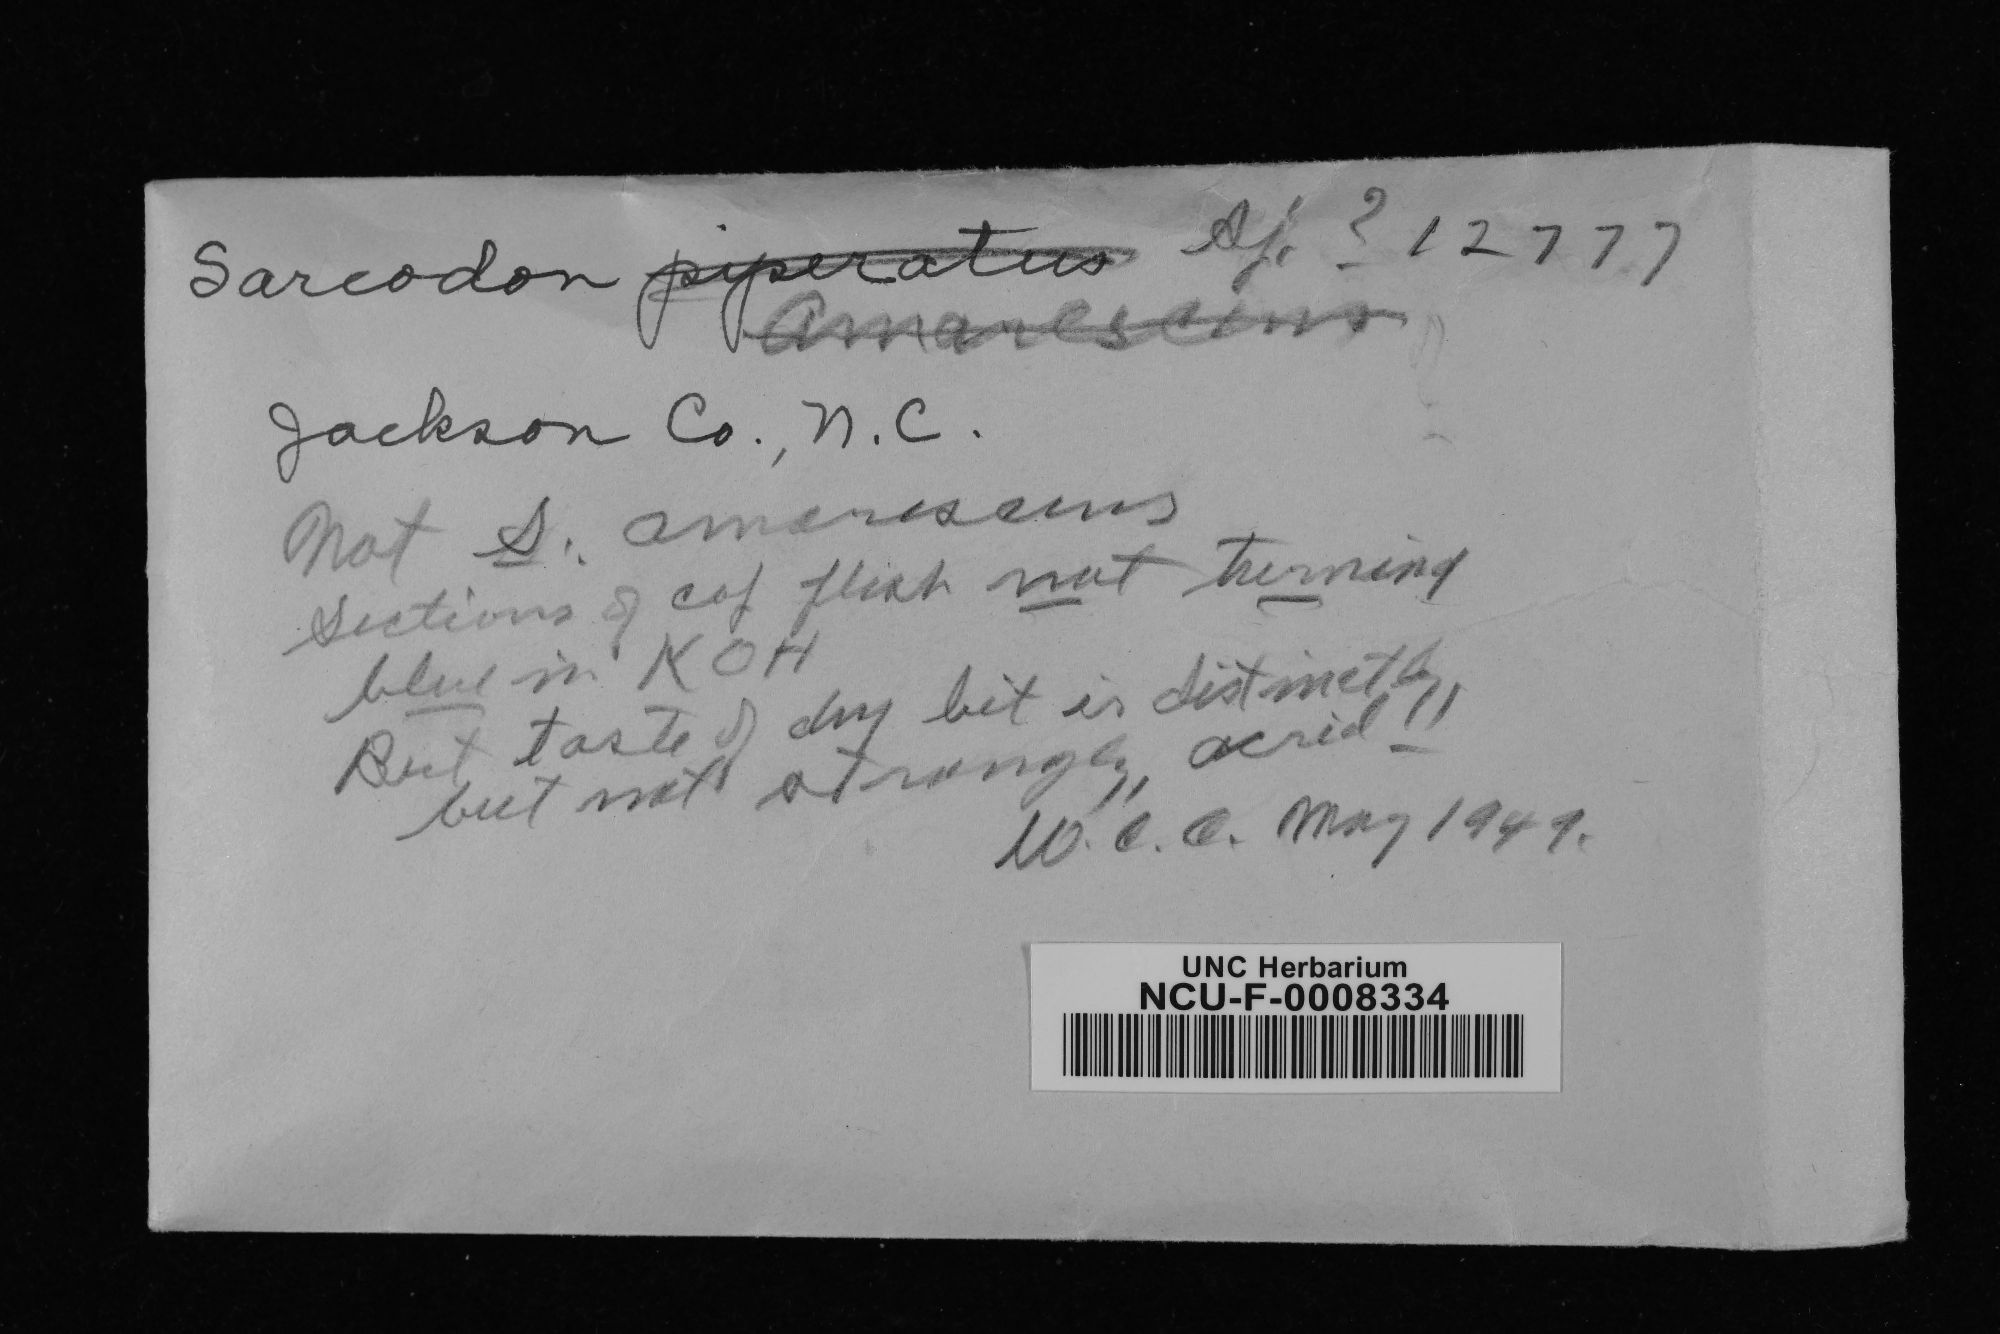 Sarcodon piperatus Sp. ? 12777
Amarescens
Jackson Co., N.C.
Not S. amarescens
Sections of cap flesh not turning
blue in KOH
But taste of dry bit is distinctly,
but not strongly, acrid!!
W.C.C. May 1949.
UNC Herbarium
NCU-F-0008334